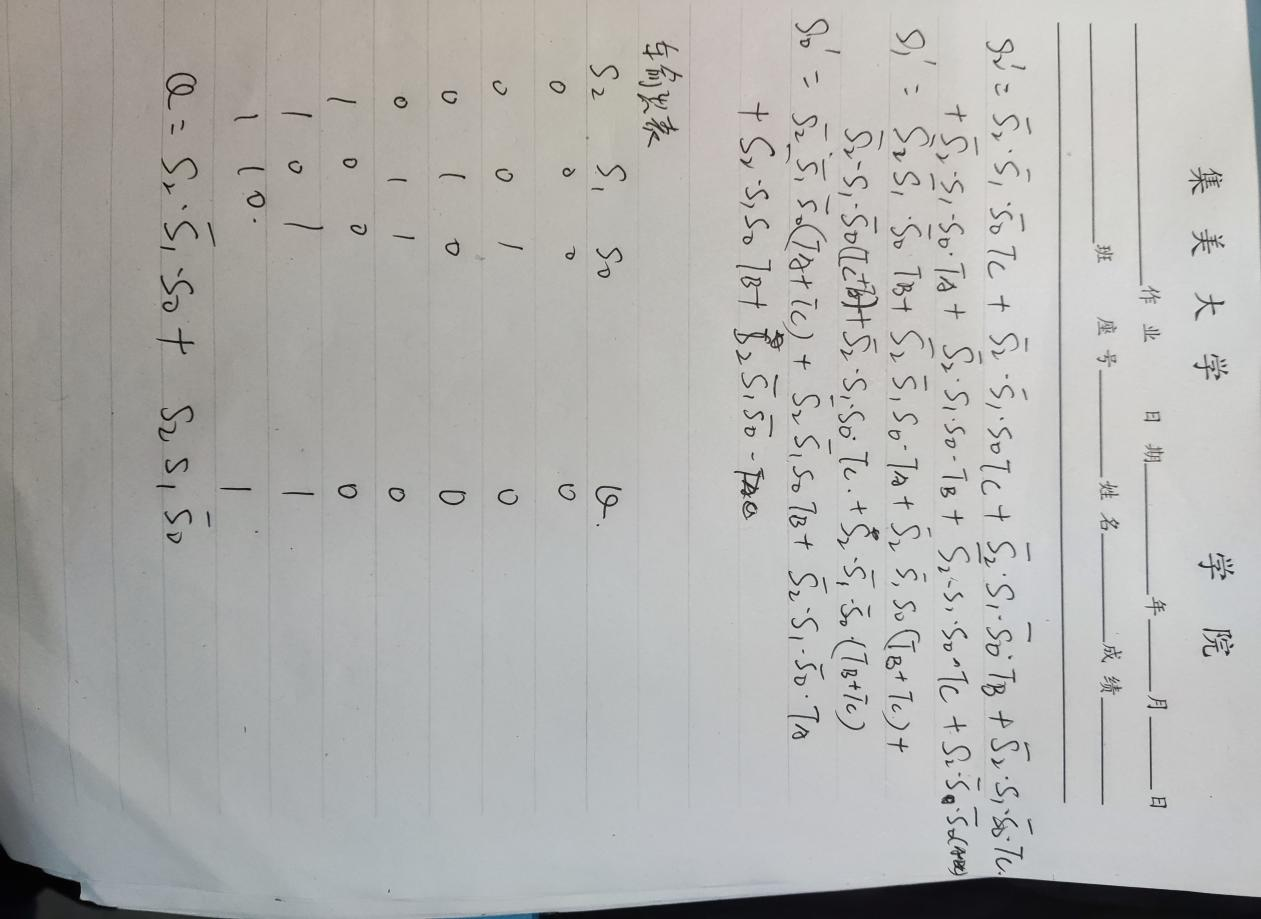 集美大学 学院
作业 日期 年 月 日
班 座号 姓名 成绩
S₂' = S̄₂·S̄₁·S̄₀TC + S̄₂·S̄₁·S₀TC + S̄₂·S₁·S̄₀·TB + S̄₂·S₁·S̄₀·TC.
+ S̄₂·S₁·S̄₀·TA + S̄₂·S₁·S₀·TB + S̄₂·S₁·S₀·TC +
S₁' = S̄₂S₁·S₀TB + S̄₂S̄₁S₀·TA + S̄₂S̄₁S₀(TB+TC) +
S̄₂·S₁·S̄₀(TC+TB) + S̄₂·S₁·S̄₀·TC. + S̄₂·S̄₁·S̄₀·(TB+TC)
S₀' = S̄₂·S̄₁S̄₀(TA+TC) + S₂S₁S₀TB + S̄₂·S₁·S̄₀·TA
+ S₂·S₁S₀TB + S̄₁S̄₀
输出表
S₂ S₁ S₀ Q.
0 0 0 0
0 0 1 0
0 1 0 0
0 1 1 0
1 0 0 0
1 0 1 1
1 1 0. 1
Q = S₂·S̄₁·S₀ + S₂S₁S̄₀